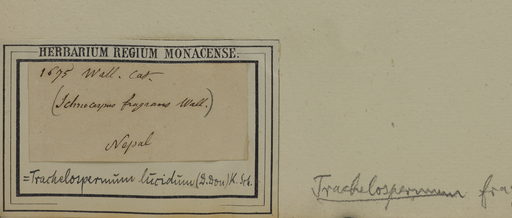 HERBARIUM REGIUM MONACENSE.
1675 Wall. Cat.
(Ichnocarpus fragrans Wall.)
Nepal
=Trachelospermum lucidum (D.Don) K. Sch.
Trachelospermum fra